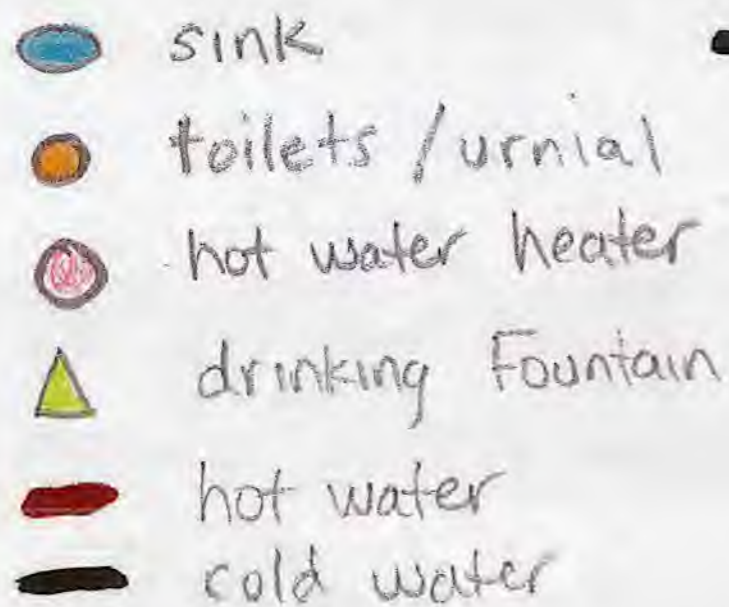 sink
toilets / urnial
hot water heater
drinking Fountain
hot water
cold water